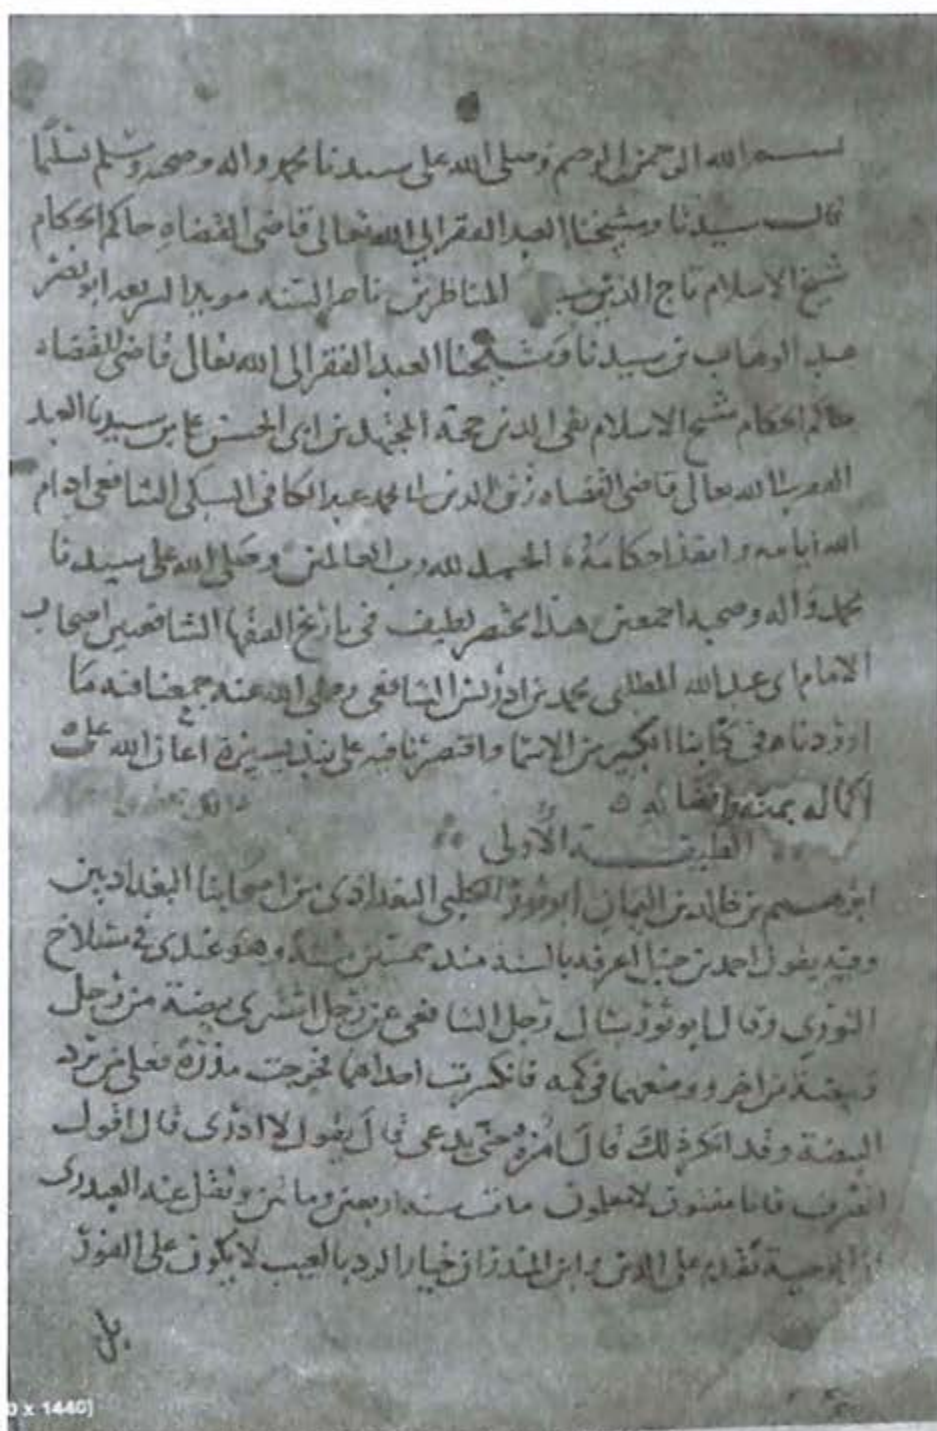 بسم الله الرحمن الرحيم وصلى الله على سيدنا محمد واله وصحبه وسلم تسليما
قال سيدنا وشيخنا العبد الفقير الى الله تعالى قاضى القضاه حاكم الحكام
شيخ الاسلام تاج الدين المناظرين ناصر السنه مويد الشريعه ابو نصر
عبد الوهاب بن سيدنا وشيخنا العبد الفقير الى الله تعالى قاضى القضاه
حاكم الحكام شيخ الاسلام تقى الدين حجة المجتهدين ابى الحسن على بن سيدنا العبد
الفقير الى الله تعالى قاضى القضاه زين الدين ابى محمد عبد الكافى السبكى الشافعى ادام
الله ايامه وانفذ احكامه الحمد لله رب العالمين وصلى الله على سيدنا
محمد واله وصحبه اجمعين هذا مختصر لطيف فى تاريخ الفقها الشافعيين اصحاب
الامام ابى عبد الله المطلبى محمد بن ادريس الشافعى رضى الله عنه جمعنا فيه ما
اوردناه فى كتابنا الكبير من الاسما واقتصرنا فيه على نبذ يسيرة اعان الله على
اكماله بمنه وافضاله
الطبقة الأولى
ابرهيم بن خالد بن اليمان ابو ثور الكلبى البغدادى من اصحابنا البغداديين
وفيه يقول احمد بن حنبل اعرفه بالسنه منذ خمسين سنة وهو عندى فى مسلاخ
الثورى وقال ابو ثور سال رجل الشافعى عن رجل اشترى بيضة من رجل
وبيضة من اخر ووضعهما فى كمه فانكسرت احداهما فخرجت مذرة فعلى من يرد
البيضة وقد انكر ذلك قال امره حتى يدعى قال يقول لا ادرى قال اقول
انصرف فانا مفتون لا معلمون مات سنه اربعين ومائتين ونقل عنه العبدرى
ان الوصية تقدم على الدين وابن المنذر ان خيار الرد بالعيب لا يكون على الفور
بل
0 x 1440]